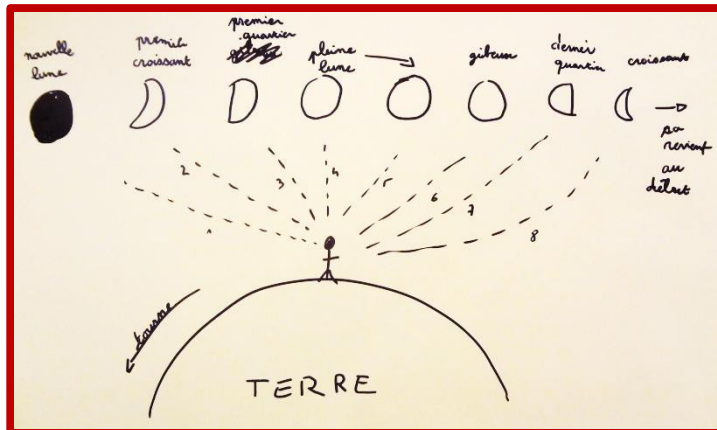 nouvelle
lune
premier
croissant
premier
quartier
pleine
lune
gibeuse
dernier
quartier
croissant
sa
revient
au
début
1
2
3
4
5
6
7
8
tourne
TERRE